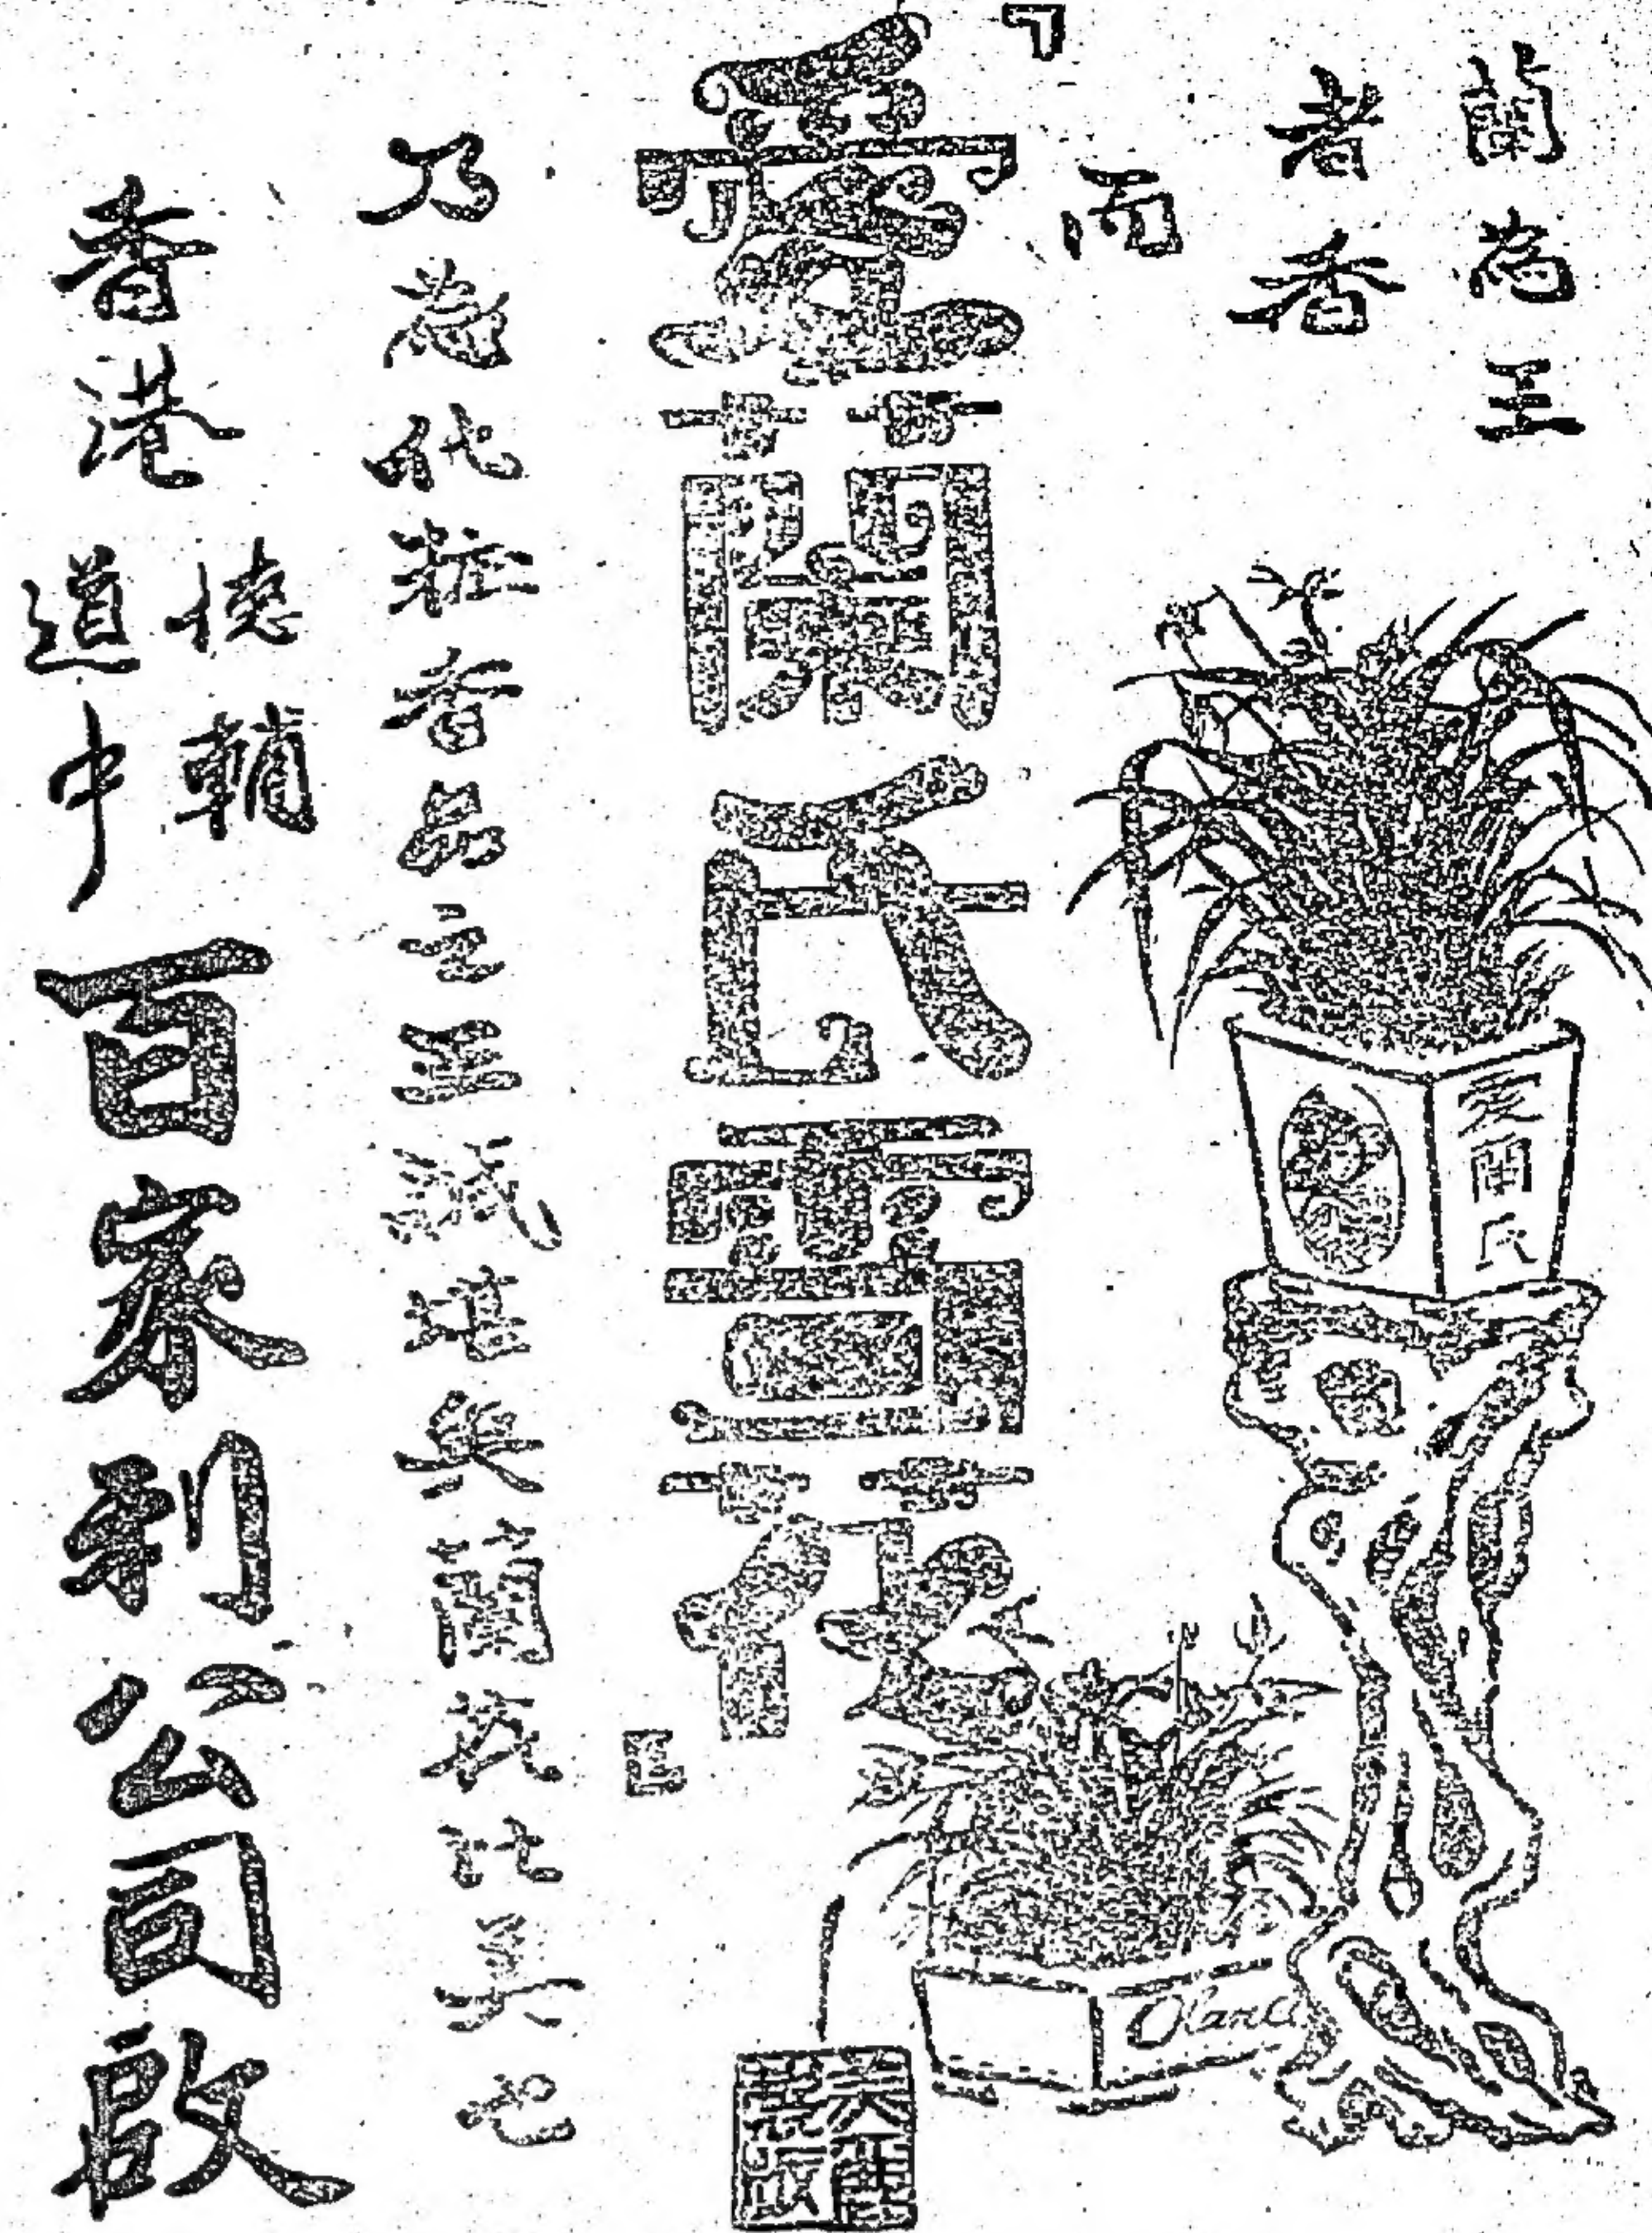 蘭為王
者香
而
「愛蘭氏雪花」
乃為化粧香品之王誠堪與蘭花比美也
香港德輔道中百家利公司啟
愛蘭氏